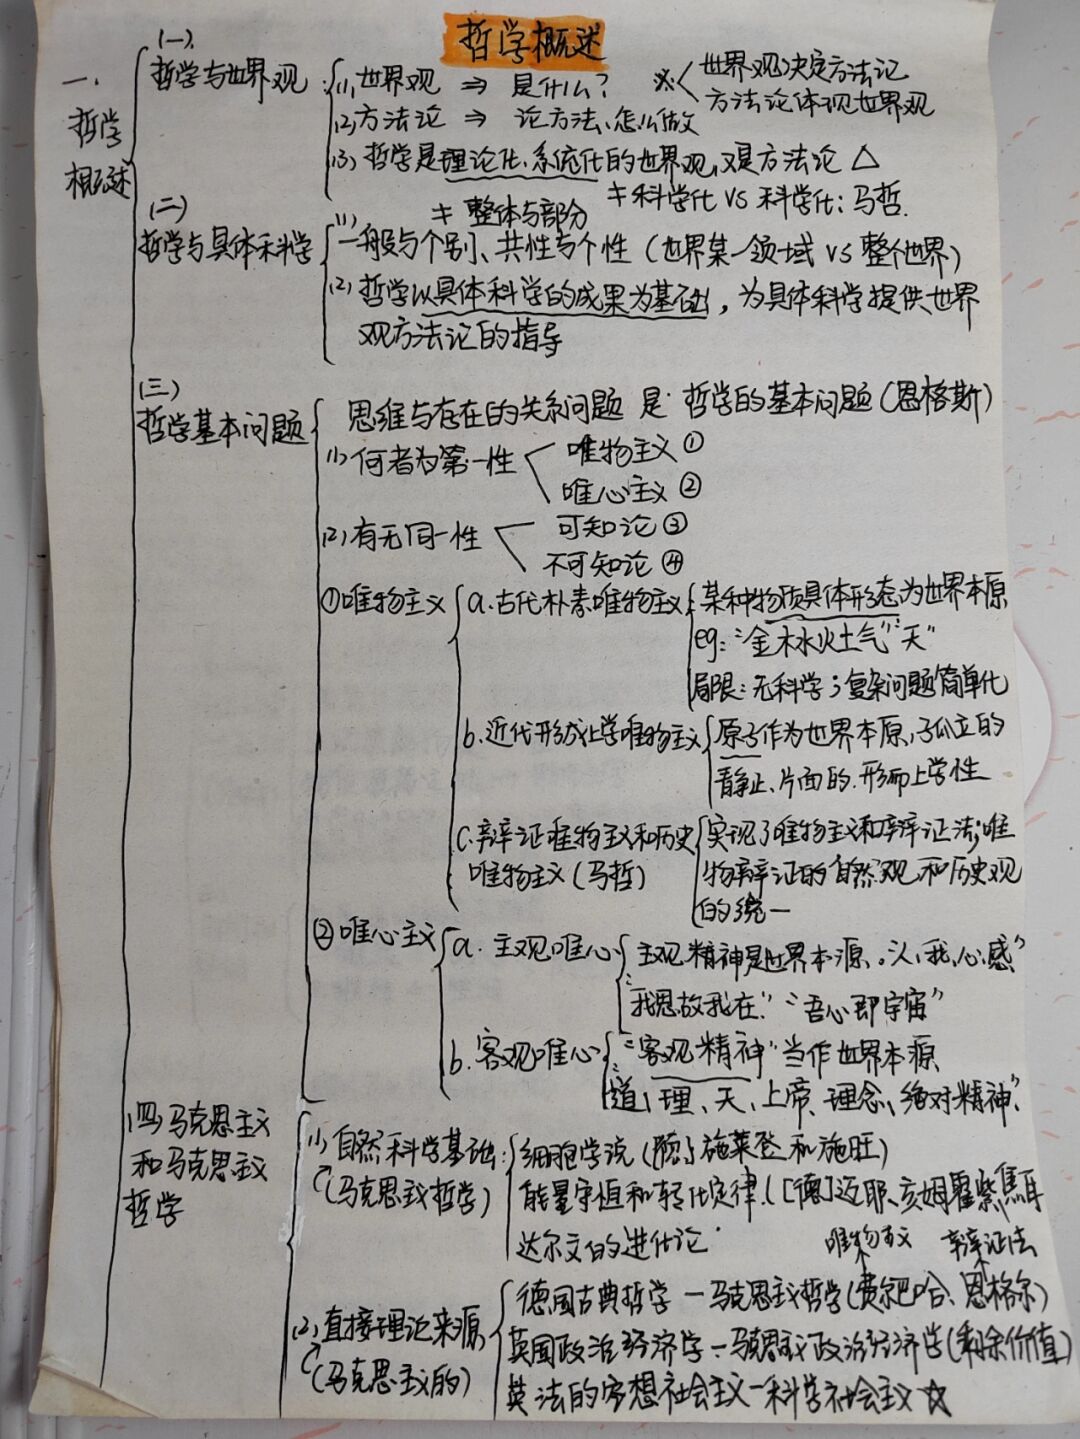 哲学概述
一.
哲学
概述
(一).
哲学与世界观
(1) 世界观 ⇒ 是什么?
※ 世界观决定方法论
方法论体现世界观
(2) 方法论 ⇒ 论方法、怎么做
(3) 哲学是理论化、系统化的世界观,又是方法论 △
≠科学化 VS 科学化:马哲.
(二)
哲学与具体科学
≠ 整体与部分
(1) 一般与个别、共性与个性(世界某一领域 VS 整个世界)
(2) 哲学以具体科学的成果为基础,为具体科学提供世界
观方法论的指导
(三)
哲学基本问题
思维与存在的关系问题 是 哲学的基本问题(恩格斯)
(1) 何者为第一性
唯物主义①
唯心主义②
(2) 有无同一性
可知论③
不可知论④
①唯物主义
a.古代朴素唯物主义
某种物质具体形态为世界本原
eg:“金木水火土气”“天”
局限:无科学;复杂问题简单化
b.近代形而上学唯物主义
原子作为世界本原,孤立的
静止、片面的.形而上学性
c.辩证唯物主义和历史
唯物主义(马哲)
实现了唯物主义和辩证法;唯
物辩证的自然观和历史观
的统一
②唯心主义
a.主观唯心
主观精神是世界本源。人,我,心,感”
“我思故我在”“吾心即宇宙”
b.客观唯心
“客观精神”当作世界本源
“道、理、天、上帝、理念、绝对精神”
(四)马克思主义
和马克思主义
哲学
(1) 自然科学基础:
(马克思主义哲学)
细胞学说(德、施莱登和施旺)
能量守恒和转化定律.([德]迈耶、亥姆霍兹,焦耳
达尔文的进化论
唯物主义 辩证法
(2) 直接理论来源
(马克思主义的)
德国古典哲学—马克思主义哲学(费尔巴哈、恩格尔)
英国政治经济学—马克思主义政治经济学(剩余价值)
英法的空想社会主义—科学社会主义 ☆